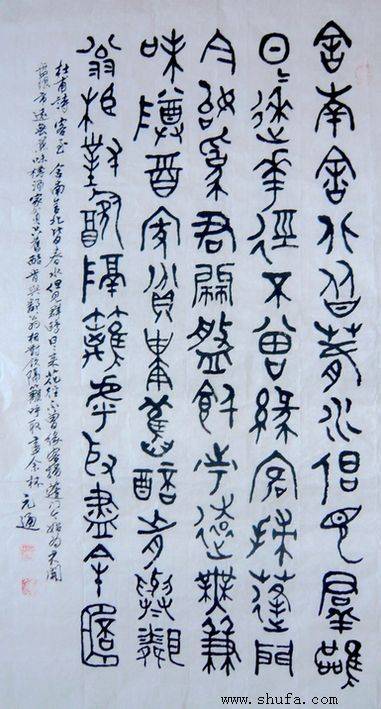 舍南舍北皆春水但見群鷗
日〻來花徑不曾緣客掃蓬門
今始為君開盤飧市遠無兼
味樽酒家貧隻舊醅肯與鄰
翁相對飲隔籬呼取盡餘杯
杜甫詩客至 舍南舍北皆春水但見群鷗日日來花徑不曾緣客掃蓬門今始為君開
盤飧市遠無兼味樽酒家貧只舊醅肯與鄰翁相對飲隔籬呼取盡餘杯 元通
www.shufa.com